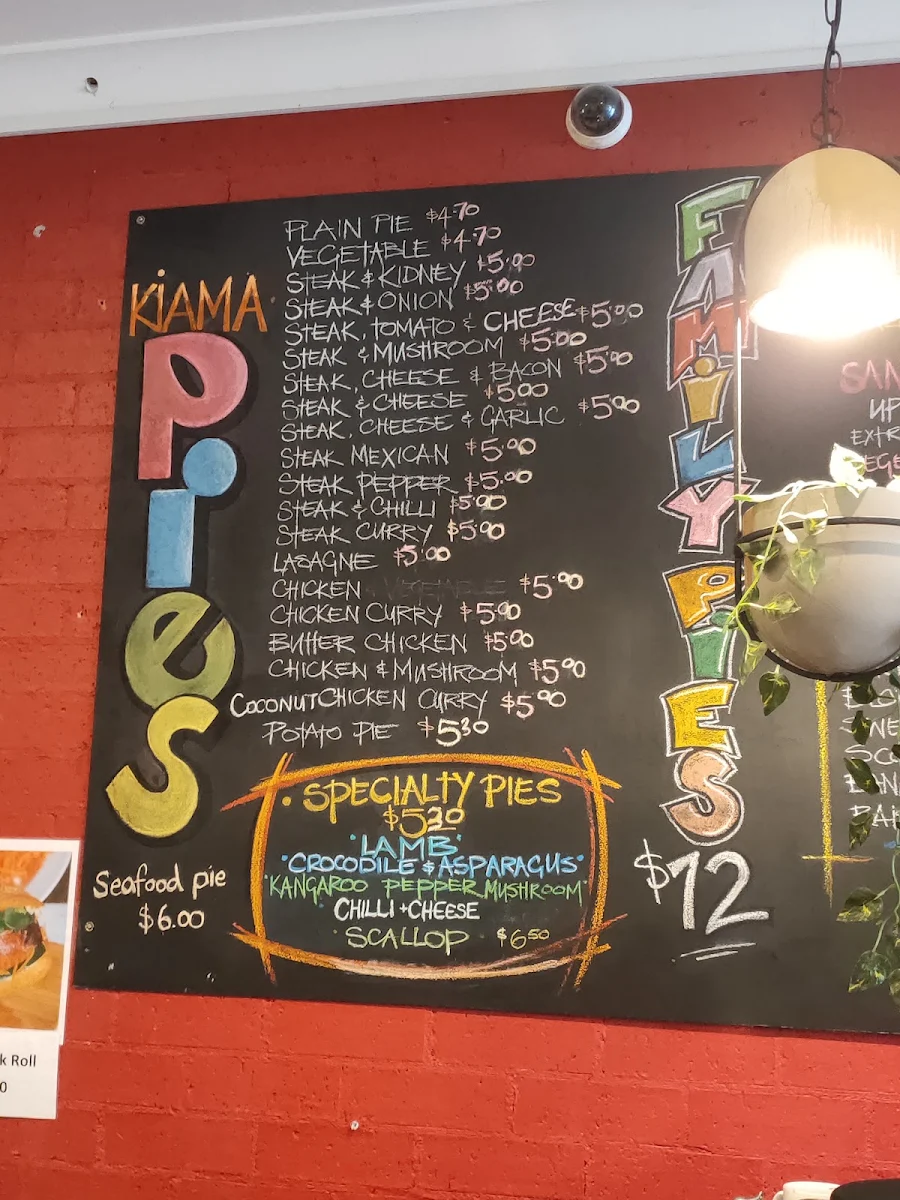 KiAMA
Pies
PLAIN PIE $4.70
VEGETABLE $4.70
STEAK & KIDNEY $5.00
STEAK & ONION $5.00
STEAK, TOMATO & CHEESE $5.00
STEAK & MUSHROOM $5.00
STEAK, CHEESE & BACON $5.00
STEAK & CHEESE $5.00
STEAK, CHEESE & GARLIC $5.00
STEAK MEXICAN $5.00
STEAK PEPPER $5.00
STEAK & CHILLI $5.00
STEAK CURRY $5.00
LASAGNE $5.00
CHICKEN VEGETABLE $5.00
CHICKEN CURRY $5.00
BUTTER CHICKEN $5.00
CHICKEN & MUSHROOM $5.00
COCONUT CHICKEN CURRY $5.00
POTATO PIE $5.30
Seafood pie
$6.00
• SPECIALTY PIES
$5.30
"LAMB"
"CROCODILE & ASPARAGUS"
"KANGAROO PEPPER MUSHROOM"
CHILLI + CHEESE
SCALLOP $6.50
FAMiLY PiES
$12
SAN
UP
EXTR
k Roll
0